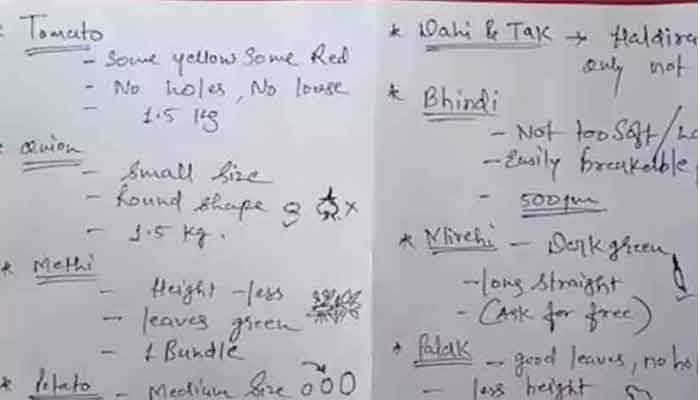 * Tomato
- Some yellow Some Red
- No holes, No loose
- 1.5 Kg
* Onion
- Small Size
- Round shape
- 1.5 Kg.
* Methi
- Height - less
- leaves green
- 1 Bundle
* Potato - Medium Size
* Dahi & Tak → Haldira
only not
* Bhindi
- Not too Soft /
- Easily breakable
- 500gm
* Mirchi - Dark green
- long straight
- (Ask for free)
* Palak - good leaves, no ho
- less height